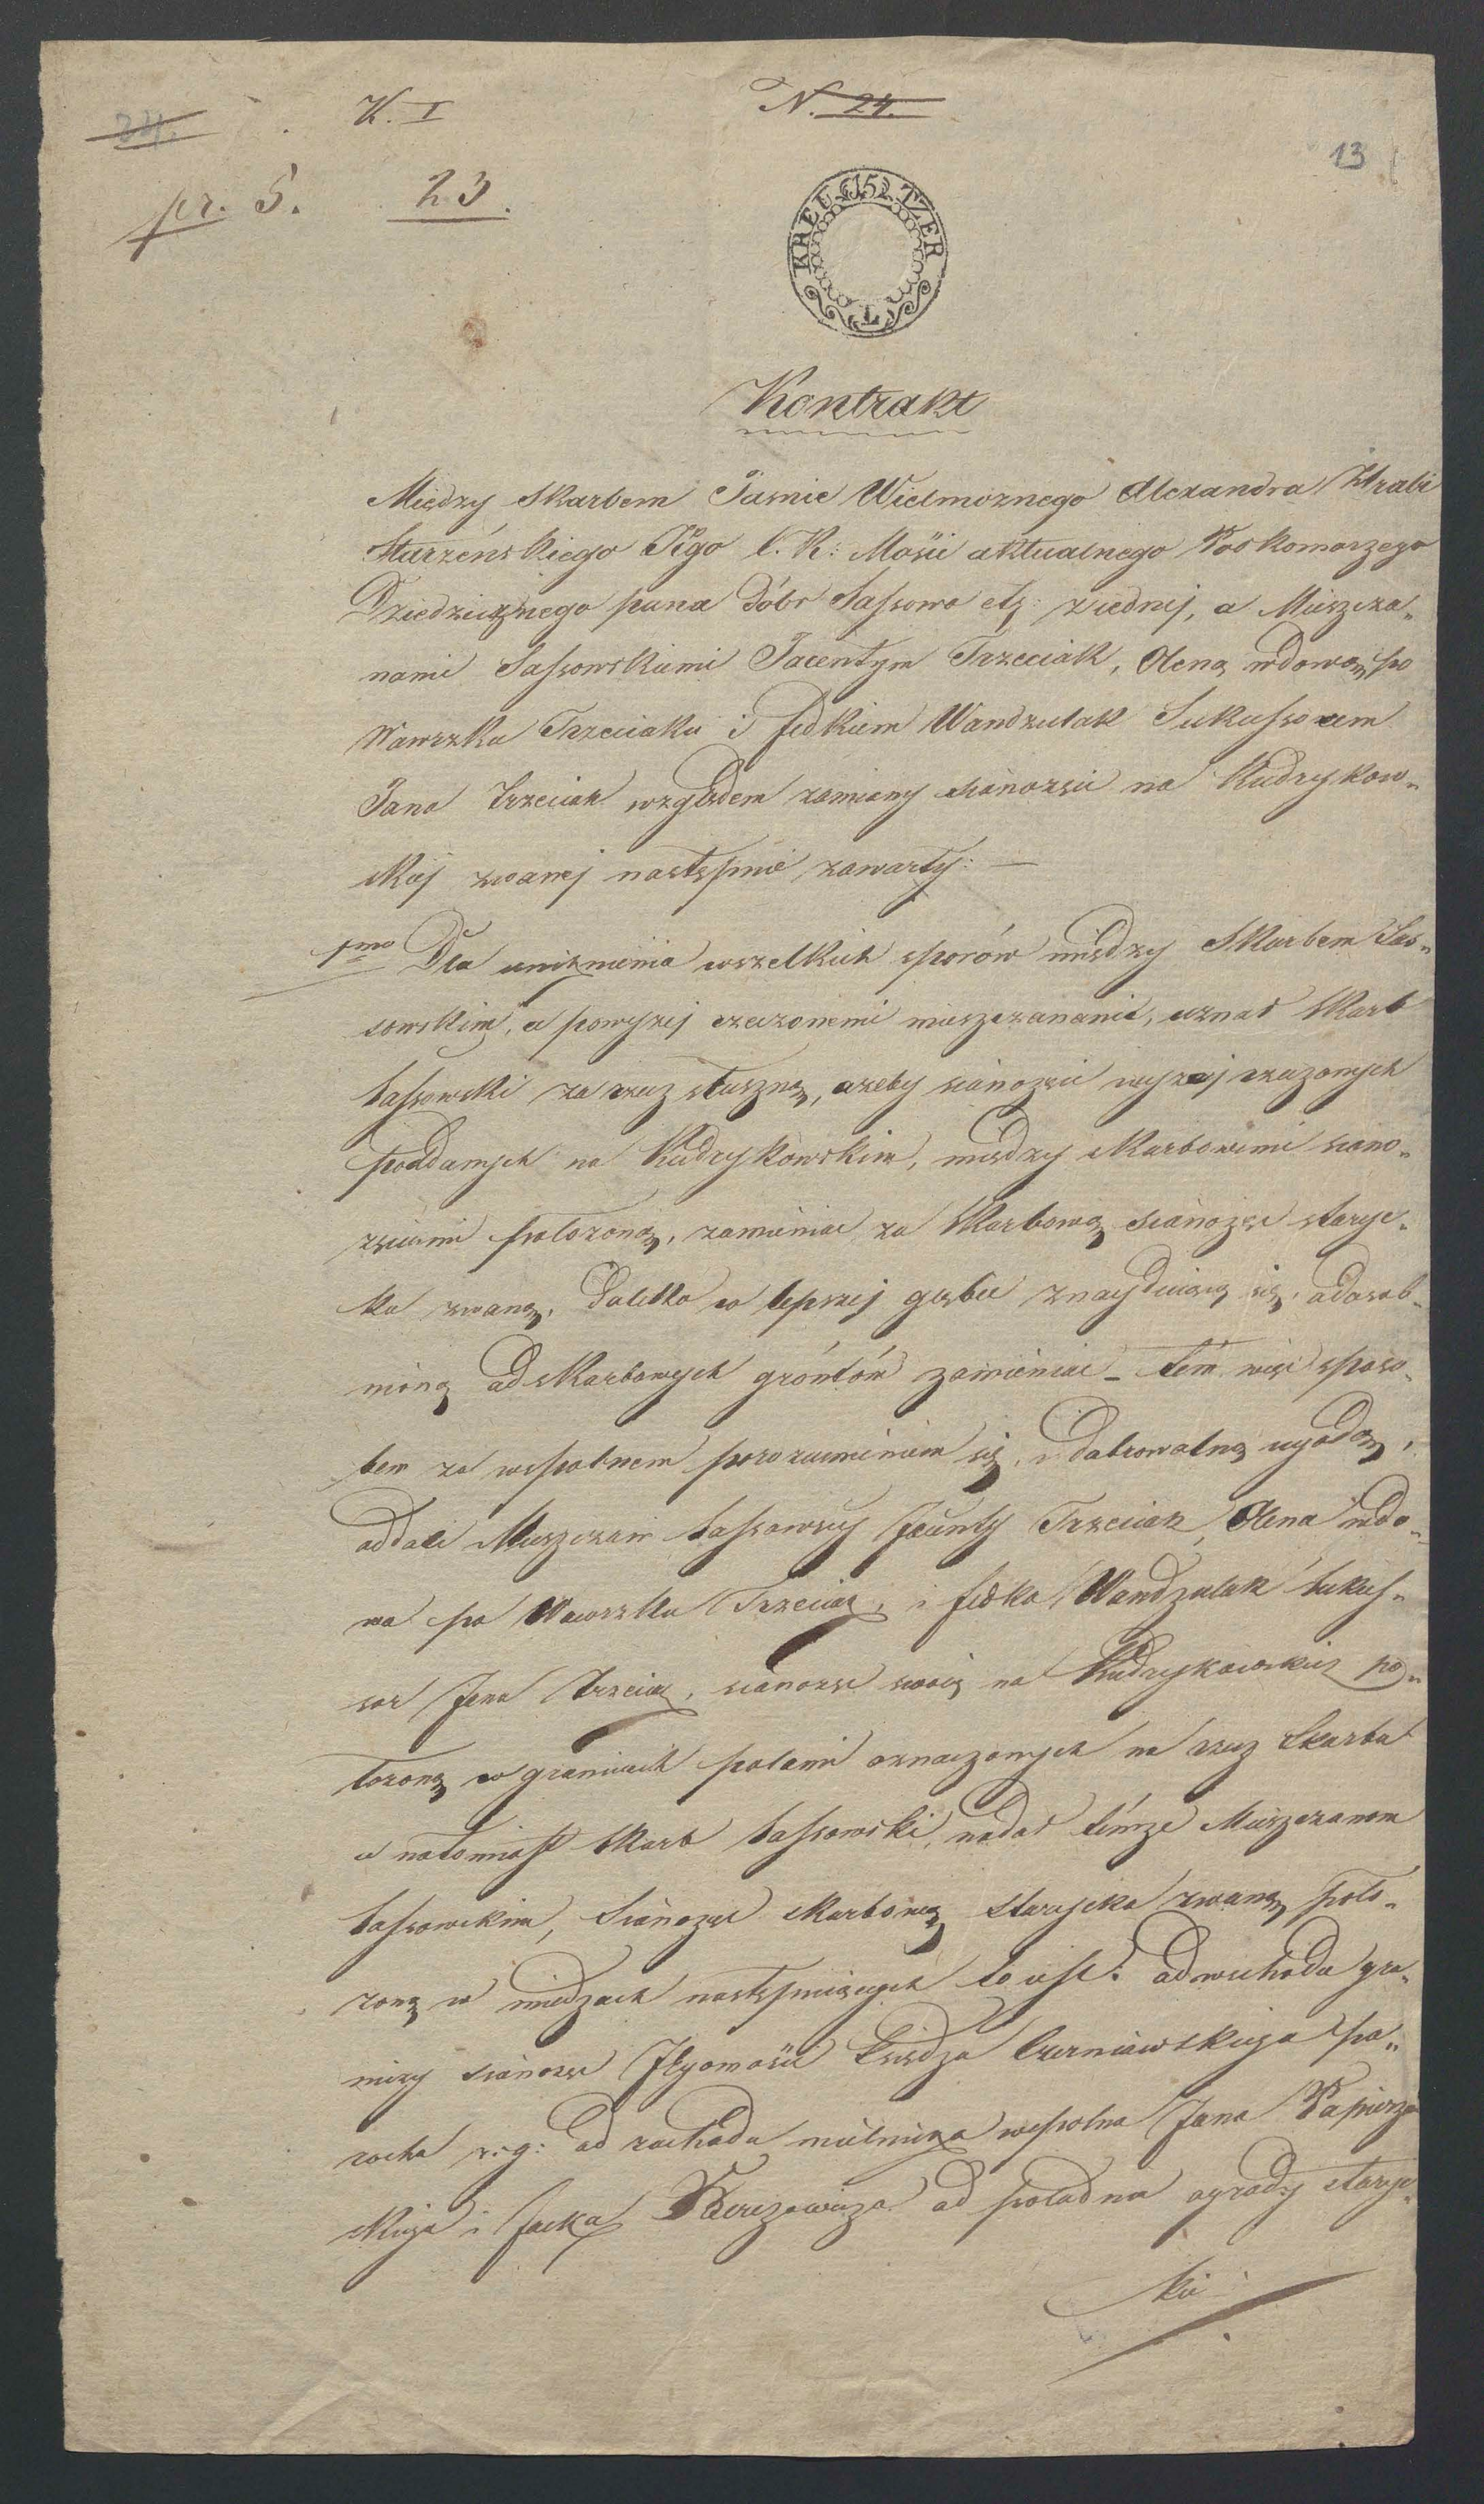 24.
K. I
N. 24.
13
pr. 5.
23.
15 KREUTZER
Kontrakt
Między Skarbem Jasnie Wielmoznego Alexandra Hrabi
Starzeńskiego Jego C. K: Mości aktualnego Podkomorzego
Dziedzicznego pana Dóbr Sassowa etz: z iedney, a Mieszcza„
nami Sassowskiemi Jacentym Trzeciak, Oleną wdową po
Wawrzku Trzeciaku i Fedkiem Wandzulak Sukcessorem
Jana Trzeciak względem zamiany sianozęci na Kudrykow„
skiej zwanej następnie zawarty: —
1mo Dla uniknienia wszelkich sporów między Skarbem Sas„
sowskim, a powyżej rzeczonemi mieszczanami, uznał Skarb
Sassowski za rzecz słuszną, azeby sianozęci wyzej rzeczonych
poddanych na Kudrykowskim, między Skarbowemi siano„
zęciami położoną, zamieniać za Skarbową sianozęć staryc„
ka zwaną, daleko w lepszej glebie znaydującą się, odosob„
nioną od Skarbowych gróntów zamieniać – tém więc sposo„
bem za wspolnem porozumieniem się, i dobrowolną ugodą,
oddali Mieszczanie Sassowscy Jacenty Trzeciak, Olena wdo„
wa po Wawrzku Trzeciak, i Fedko Wandzulak Sukces„
sor Jana Trzeciak, sianozęć swoię na Kudrykowskiej po„
łozoną w granicach polami oznaczonych na rzecz Skarbu
a natomiast Skarb Sassowski, nadał témze Mieszczanom
Sassowskim, Sianozęć Skarbową starycka zwaną poło„
zoną w miedzach następuiących to iest: od wschodu gra„
niczy sianozęć Jegomości Księdza Czerniawskiego pa„
rocha r: g: od zachodu mielniza wspolna Jana Papierza
skiego i Jacka od poładnia ogrody staryc„
kie